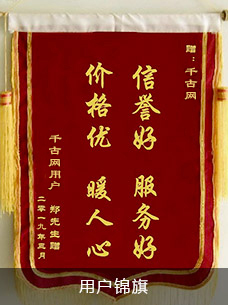 赠：千古网
信誉好 服务好
价格优 暖人心
千古网用户 郑先生赠
二零一九年三月
用户锦旗